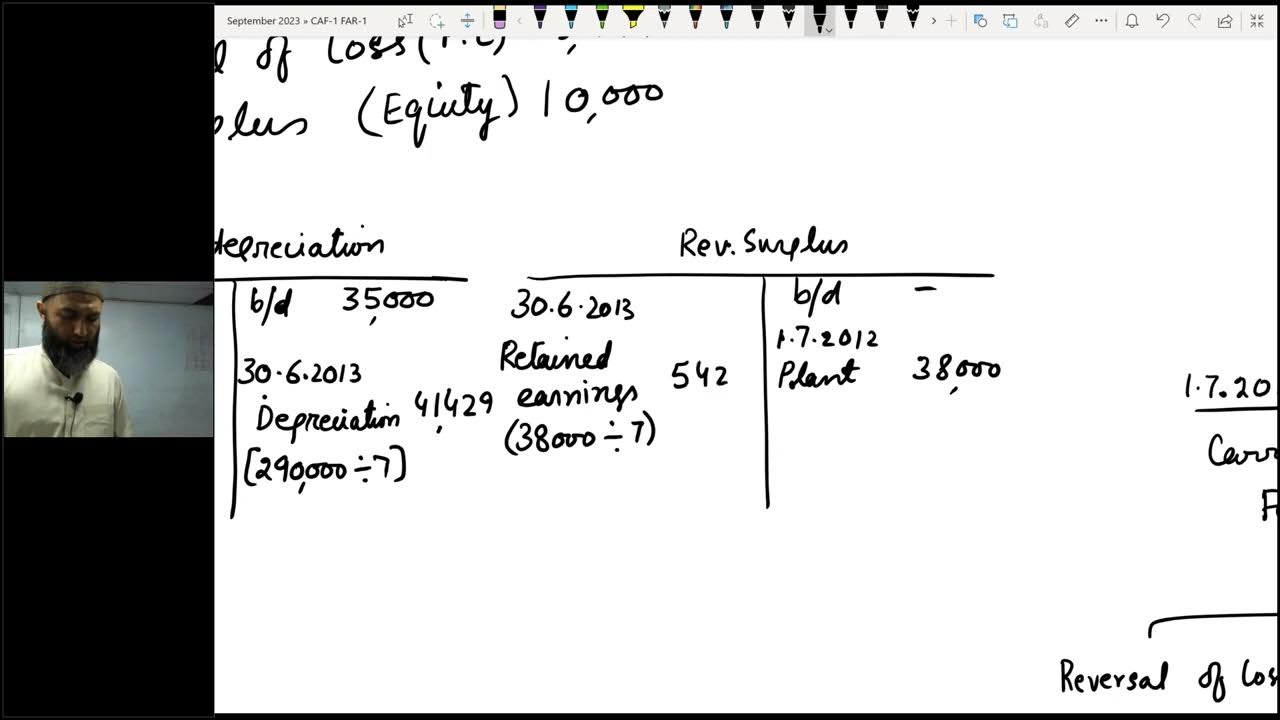 September 2023 » CAF-1 FAR-1
of Loss
plus (Equity) 10,000
depreciation
b/d 35,000
30.6.2013
Depreciation 41,429
[290,000 ÷ 7]
Rev. Surplus
30.6.2013
Retained
earnings 542
(38000 ÷ 7)
b/d -
1.7.2012
Plant 38,000
1.7.20
Carr
F
Reversal of Los